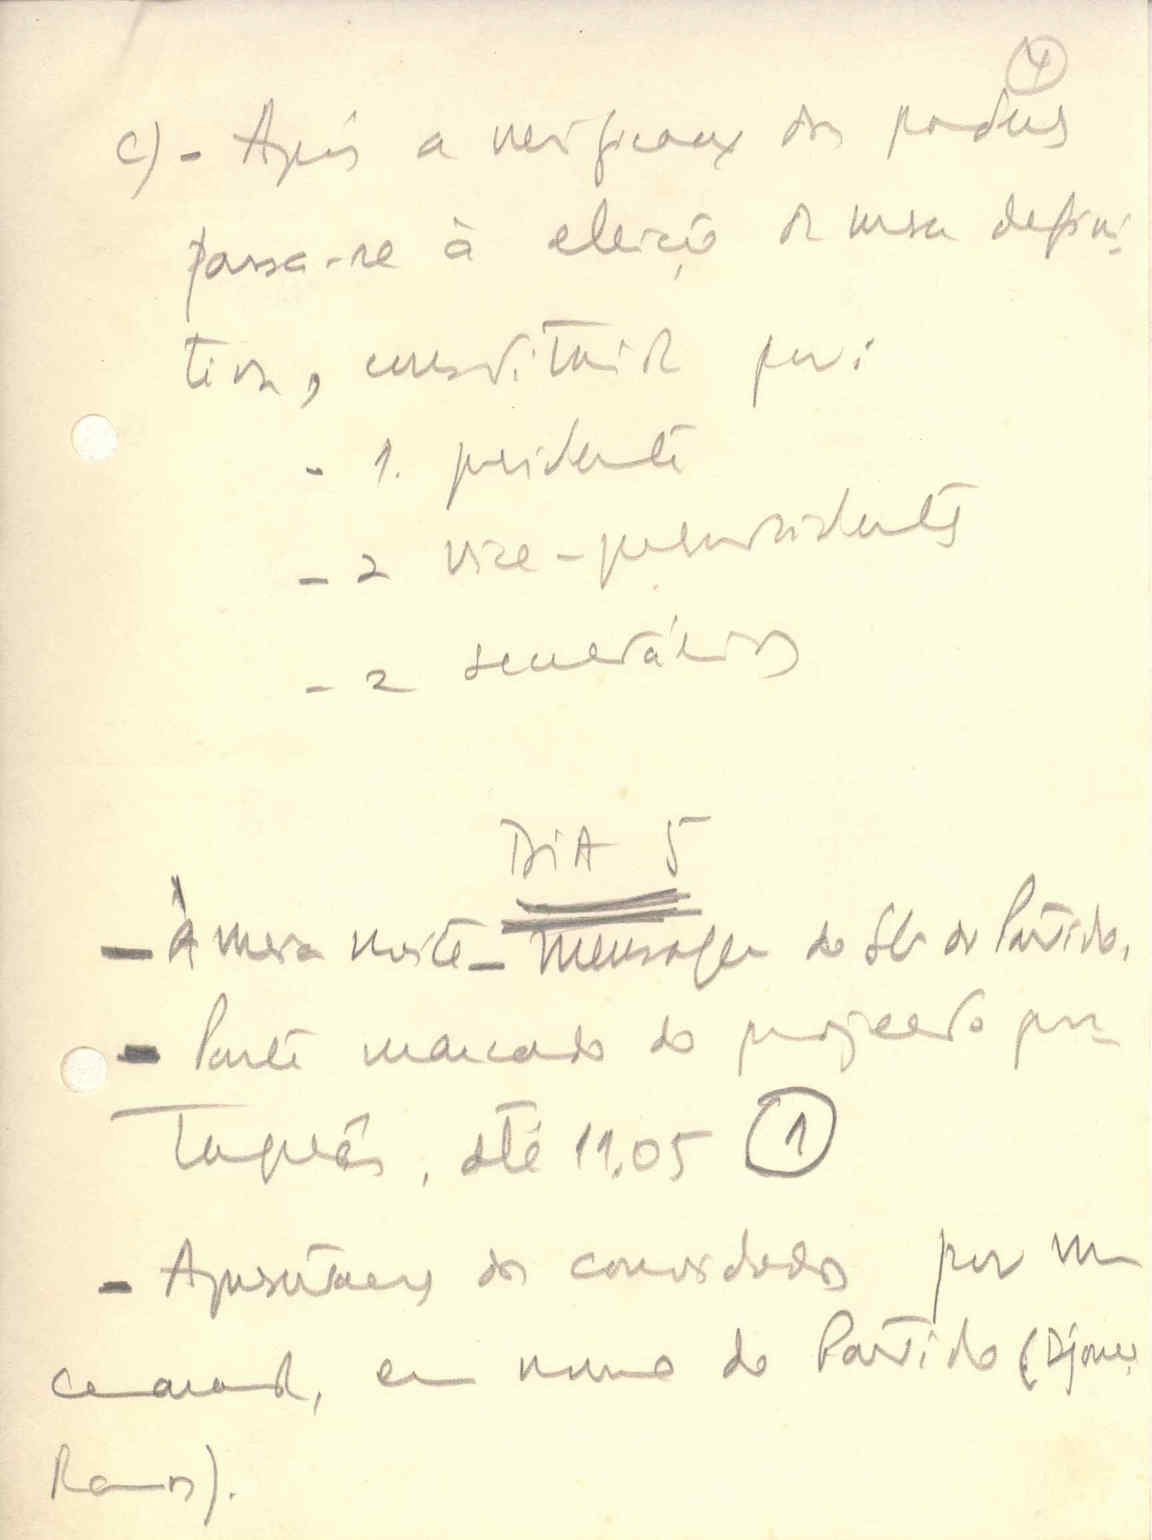 4
c) - Após a verificação dos poderes
passa-se à eleição da mesa defini-
tiva, constituída por:
- 1. presidente
- 2 vice-presidentes
- 2 secretários
DIA 5
- À meia noite - mensagem do SG do Partido.
- Parte marcada do projecto por-
tuguês, até 11.05 1
- Apresentação dos convidados por um
camarada, em nome do Partido (
Ramos).